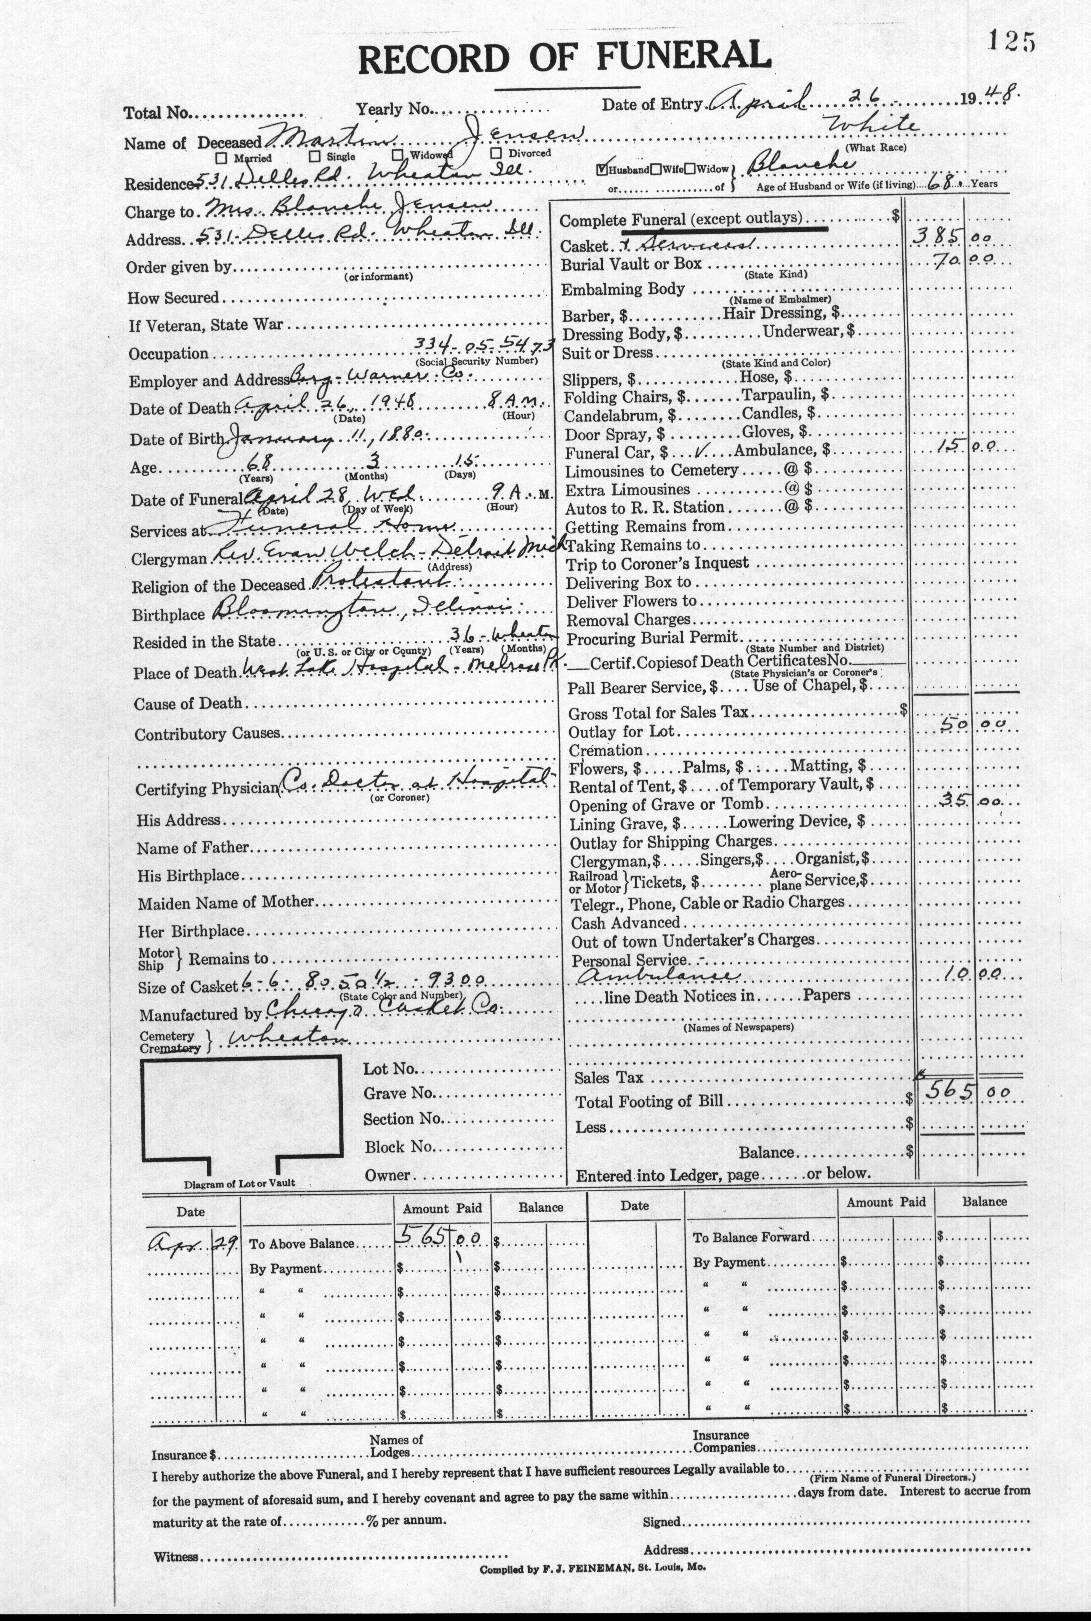 125
RECORD OF FUNERAL
Total No. Yearly No. Date of Entry April 26 1948.
Name of Deceased Martin Jensen White
(What Race)
☐ Married ☐ Single ☐ Widowed ☐ Divorced
Residence 531 Delles Rd. Wheaton Ill. ☑ Husband ☐ Wife ☐ Widow } Blanche
or of Age of Husband or Wife (if living) 68 Years
Charge to Mrs. Blanche Jensen
Address 531 Delles Rd. Wheaton Ill.
Order given by
(or informant)
How Secured
If Veteran, State War
Occupation 334-05-5473
(Social Security Number)
Employer and Address Borg-Warner Co.
Date of Death April 26, 1948 8 A.M.
(Date) (Hour)
Date of Birth January 11, 1880
Age 68 3 15
(Years) (Months) (Days)
Date of Funeral April 28, Wed. 9 A.M.
(Date) (Day of Week) (Hour)
Services at Funeral Home
Clergyman Rev. Evan Welch - Detroit Mich
(Address)
Religion of the Deceased Protestant
Birthplace Bloomington, Illinois
Resided in the State 36 - Wheaton
(or U. S. or City or County) (Years) (Months)
Place of Death West Lake Hospital - Melrose Pk.
Cause of Death
Contributory Causes
Certifying Physician Co. Doctor at Hospital
(or Coroner)
His Address
Name of Father
His Birthplace
Maiden Name of Mother
Her Birthplace
Motor Ship } Remains to
Size of Casket 6-6 - 80 50 1/2 - 9300
(State Color and Number)
Manufactured by Chicago Casket Co.
Cemetery
Crematory } Wheaton
Lot No.
Grave No.
Section No.
Block No.
Owner
Diagram of Lot or Vault
Complete Funeral (except outlays) $
Casket & Services 385 00
Burial Vault or Box 70 00
(State Kind)
Embalming Body
(Name of Embalmer)
Barber, $ Hair Dressing, $
Dressing Body, $ Underwear, $
Suit or Dress
(State Kind and Color)
Slippers, $ Hose, $
Folding Chairs, $ Tarpaulin, $
Candelabrum, $ Candles, $
Door Spray, $ Gloves, $
Funeral Car, $ ✓ Ambulance, $ 15 00
Limousines to Cemetery @ $
Extra Limousines @ $
Autos to R. R. Station @ $
Getting Remains from
Taking Remains to
Trip to Coroner's Inquest
Delivering Box to
Deliver Flowers to
Removal Charges
Procuring Burial Permit
(State Number and District)
Certif. Copies of Death Certificates No.
(State Physician's or Coroner's
Pall Bearer Service, $ Use of Chapel, $
Gross Total for Sales Tax $
Outlay for Lot 50 00
Cremation
Flowers, $ Palms, $ Matting, $
Rental of Tent, $ of Temporary Vault, $
Opening of Grave or Tomb 35 00
Lining Grave, $ Lowering Device, $
Outlay for Shipping Charges
Clergyman, $ Singers, $ Organist, $
Railroad or Motor } Tickets, $ Aeroplane Service, $
Telegr., Phone, Cable or Radio Charges
Cash Advanced
Out of town Undertaker's Charges
Personal Service
Ambulance 10 00
line Death Notices in Papers
(Names of Newspapers)
Sales Tax
Total Footing of Bill $ 565 00
Less $
Balance $
Entered into Ledger, page or below.
Date Amount Paid Balance Date Amount Paid Balance
Apr. 29 To Above Balance 565 00 $ To Balance Forward $
By Payment $ $ By Payment $ $
" " $ $ " " $ $
" " $ $ " " $ $
" " $ $ " " $ $
" " $ $ " " $ $
" " $ $ " " $ $
" " $ $ " " $ $
Insurance $ Names of Lodges Insurance Companies
I hereby authorize the above Funeral, and I hereby represent that I have sufficient resources Legally available to
(Firm Name of Funeral Directors.)
for the payment of aforesaid sum, and I hereby covenant and agree to pay the same within days from date. Interest to accrue from
maturity at the rate of % per annum. Signed
Witness Address
Compiled by F. J. FEINEMAN, St. Louis, Mo.